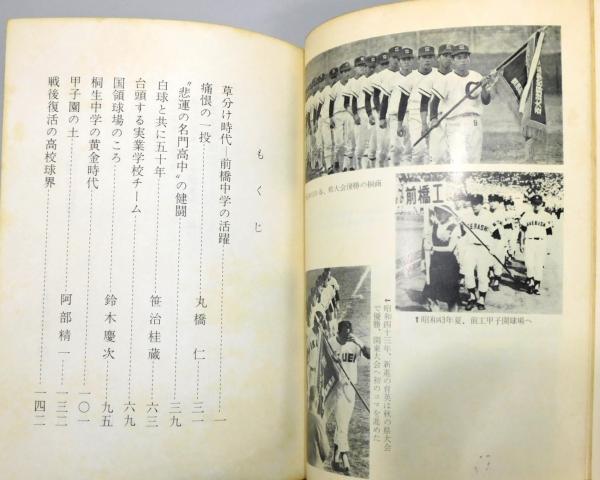 もくじ
草分け時代―前橋中学の活躍……一
痛恨の一投……丸橋 仁……三一
“悲運の名門高中”の健闘……三九
白球と共に五十年……笹治桂蔵……六三
台頭する実業学校チーム……六九
国領球場のころ……鈴木慶次……九五
桐生中学の黄金時代……一〇一
甲子園の土……阿部精一……一三二
戦後復活の高校球界……一四二
県大会優勝の桐商
前橋工
↑昭和43年夏、前工甲子園球場へ
←昭和四十三年、新進の育英は秋の県大会
で優勝、関東大会へ初のコマを進めた